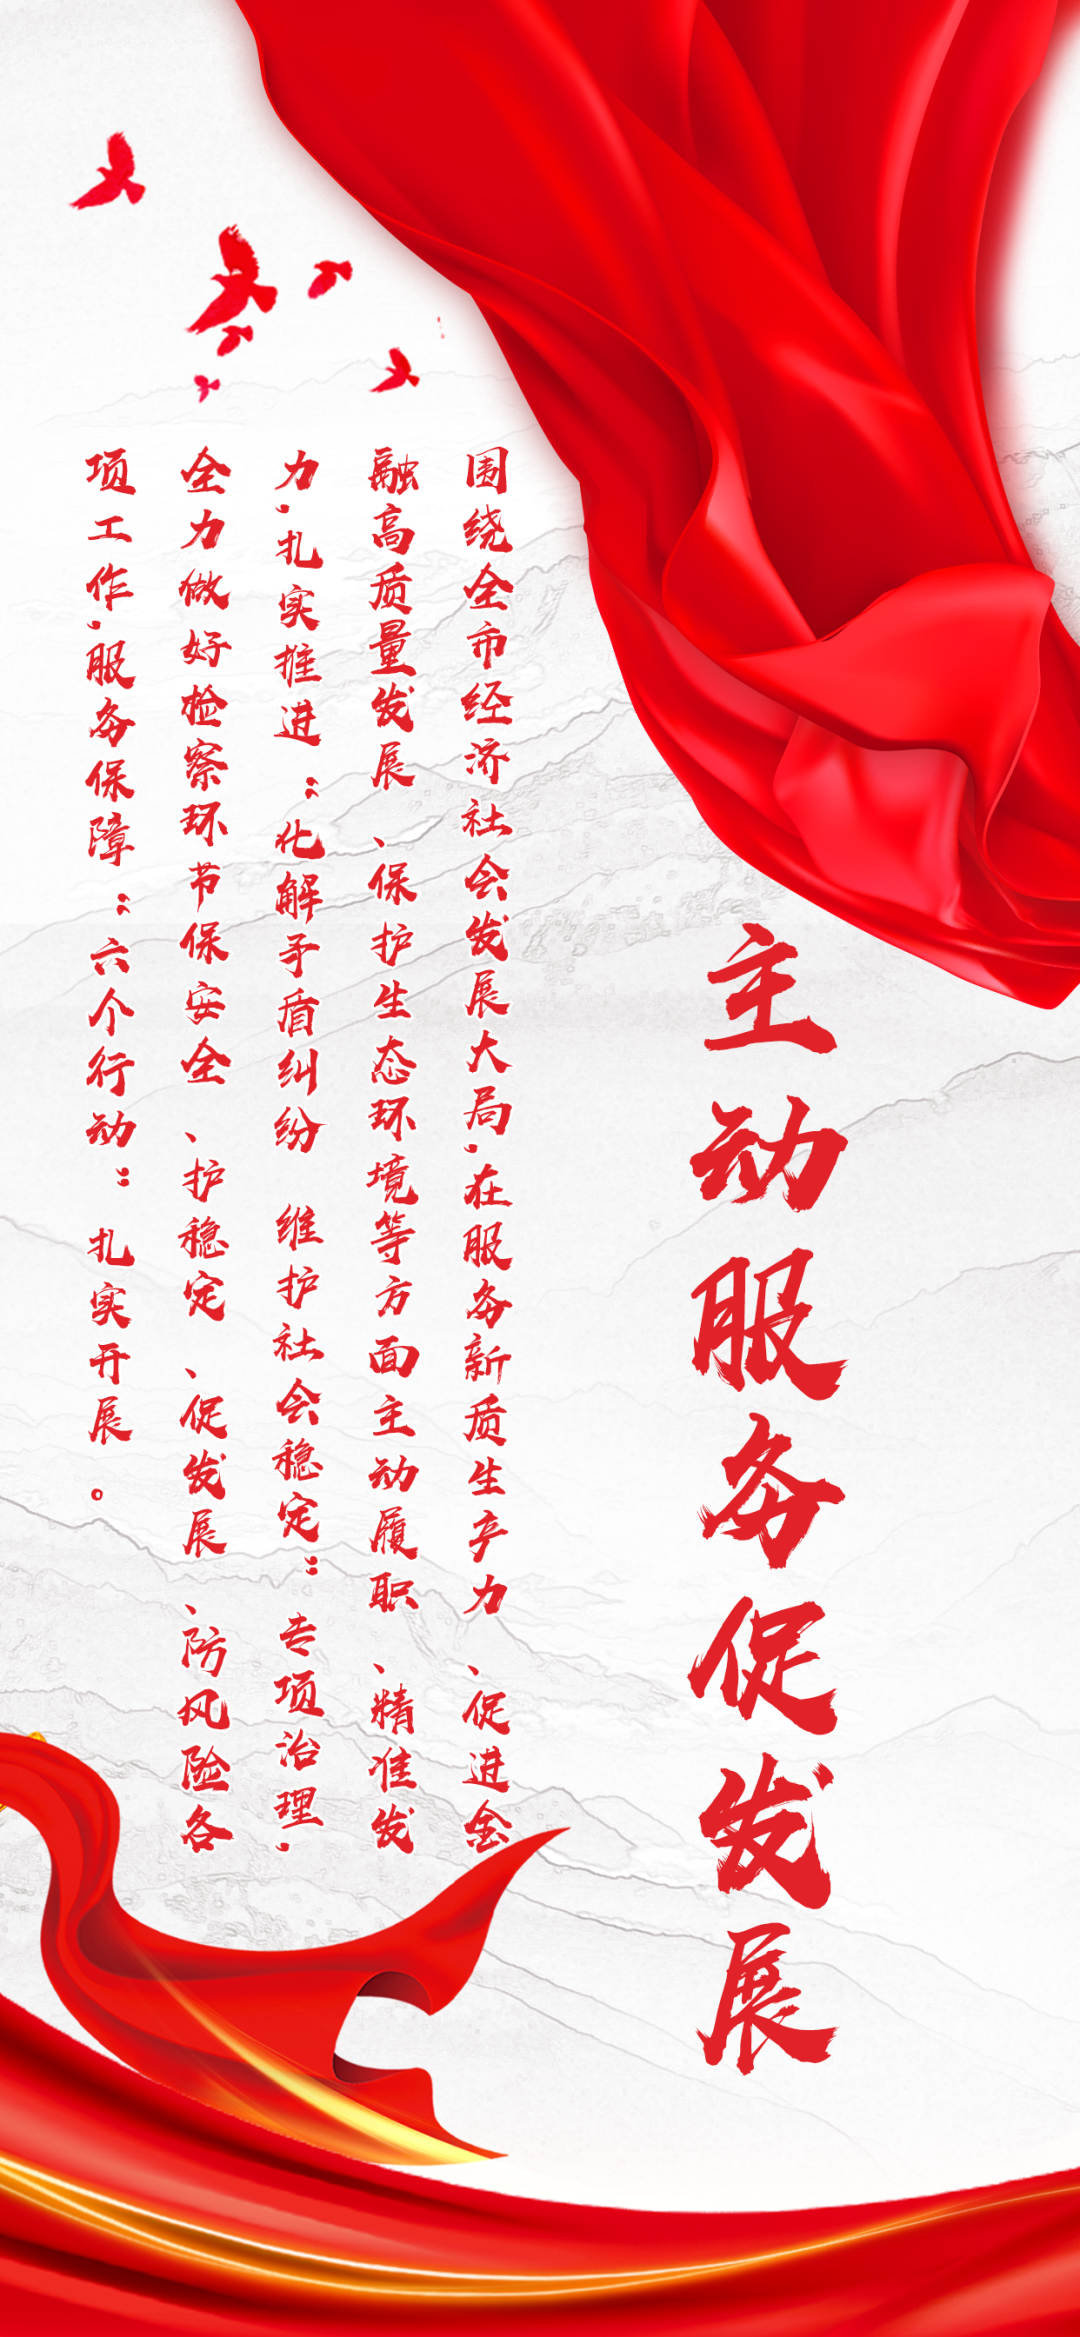 主动服务促发展
围绕全市经济社会发展大局，在服务新质生产力、促进金
融高质量发展、保护生态环境等方面主动履职、精准发
力，扎实推进“化解矛盾纠纷 维护社会稳定”专项治理，
全力做好检察环节保安全、护稳定、促发展、防风险各
项工作，服务保障“六个行动”扎实开展。